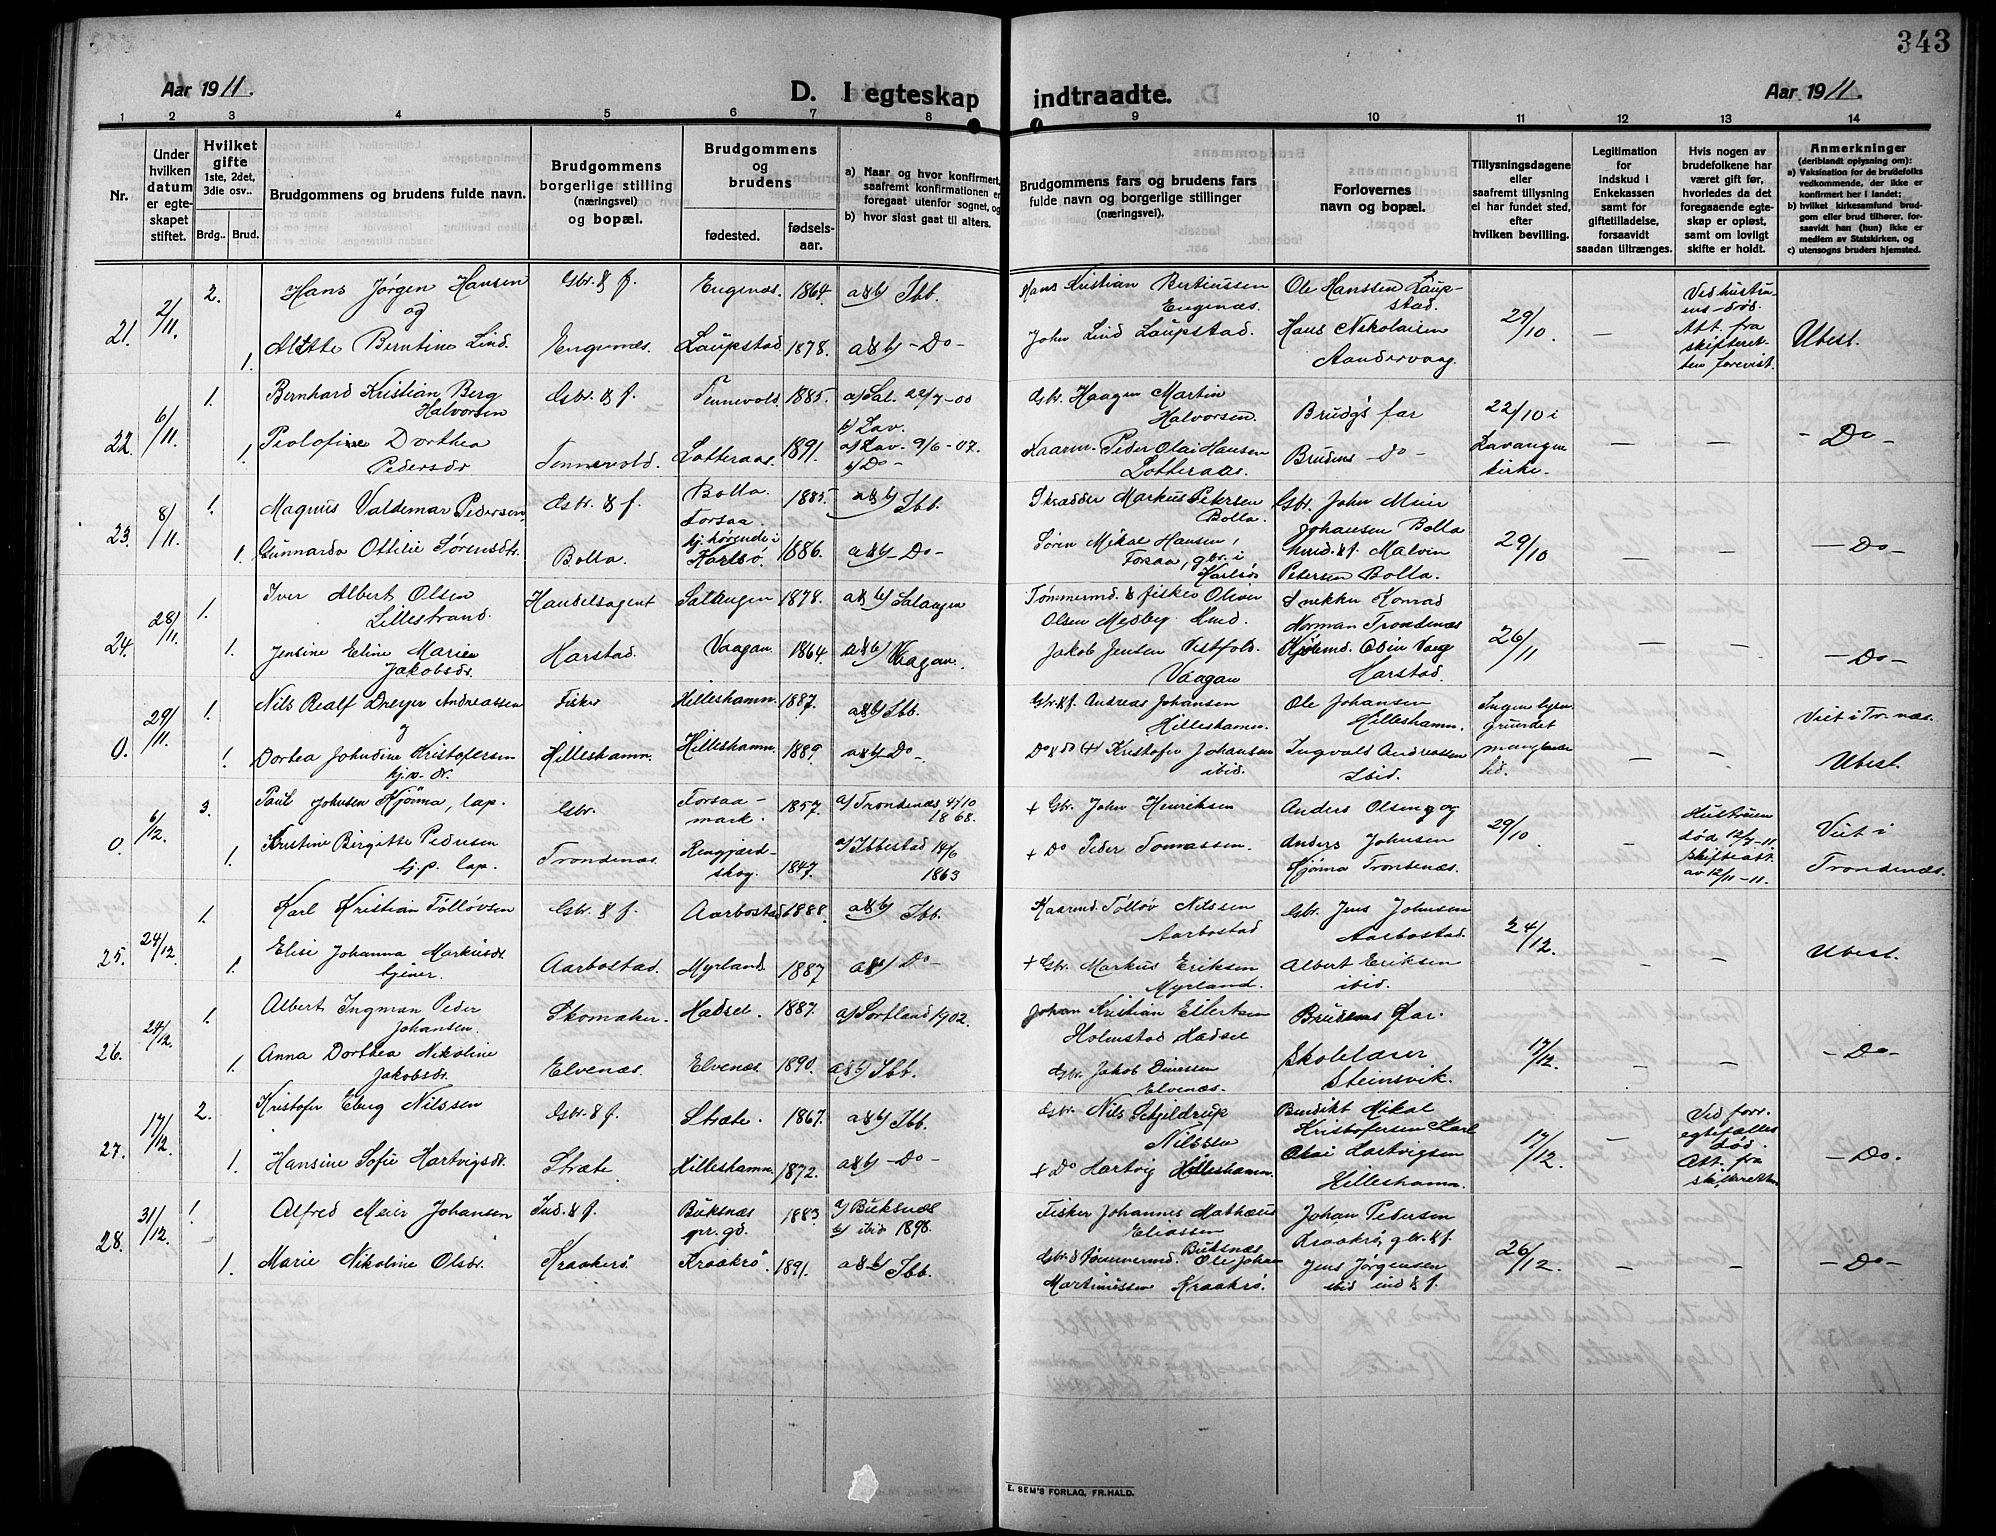 343
Aar 1911.
D. I egteskap indtraadte.
Aar 1911.
1 2 3 4 5 6 7 8 9 10 11 12 13 14
Nr.
Under hvilken datum er egte-skapet stiftet.
Hvilket gifte 1ste, 2det, 3die osv..
Brdg.. Brud.
Brudgommens og brudens fulde navn.
Brudgommens borgerlige stilling (næringsvei) og bopæl.
Brudgommens og brudens
fødested.
fødsels-aar.
a) Naar og hvor konfirmert, saafremt konfirmationen er foregaat utenfor sognet, og
b) hvor sidst gaat til alters.
Brudgommens fars og brudens fars fulde navn og borgerlige stillinger (næringsvei).
Forlovernes navn og bopæl.
Tillysningsdagene eller saafremt tillysning ei har fundet sted, efter hvilken bevilling.
Legitimation for indskud i Enkekassen samt for giftetilladelse, forsaavidt saadan tiltrænges.
Hvis nogen av brudefolkene har været gift før, hvorledes da det foregaaende egte-skap er opløst, samt om lovligt skifte er holdt.
Anmerkninger (deriblandt oplysning om):
a) Vaksination for de brudefolks vedkommende, der ikke er konfirmert her i landet;
b) hvilket kirkesamfund brud-gom eller brud tilhører, for-saavidt han (hun) ikke er medlem av Statskirken, og
c) utensogns bruders hjemsted.
21. 2/11. 2. Hans Jørgen Hansen Gbr. & f. Engenæs. 1864. a&b) Ibb. Hans Kristian Bertinussen Ole Hanssen Laup- Ved hustru-
og Engenæs. stad. 29/10 — ens død.
1. Berntine Lind. Engenæs. Laupstad 1878. a&b) - Do - John Lind Laupstad. Hans Nikolaisen Att. fra Ubest.
Aandervaag. skifteret-
ten forevist.
22. 6/11. 1. Bernhard Kristian Berg Gbr. & f. Tennevold. 1885. a) Sal. 22/7-00 Gbr. Haagen Martin
Halvorsen b) Lav. Halvorsen. Brudg's far 22/10 i
1. Peolofine Dorthea Tennevold. Lotteraas. 1891. a) Lav. 9/6-07. Kaarm. Peder Olai Hansen Brudens - Do - Lavangen — — - Do -
Pedersdr b) Do - Lotteraas. kirke.
23. 8/11. 1. Magnus Valdemar Pedersen, Gbr. & f. Bolla. 1885. a&b) Ibb. Skrædder Markus Petersen Gbr. John Meier
Forsaa. Bolla. Johansen Bolla 29/10 — — - Do -
1. Gunnarda Ottilie Sørensdtr. Bolla. hj.hørende i Karlsø. 1886. a&b) - Do - Søren Mikal Hansen, Malvin
Forsaa, gbr. i Karlsø. Petersen Bolla.
24. 28/11. 1. Iver Albert Olsen Handelsagent Salangen 1878. a&b) Salangen Tømmermd. & fisker Oliver Snekker Konrad
Lillestrand. Olsen Medby Norman Trondenæs 26/11 — — - Do -
1. Jensine Eline Marie Harstad. Vaagan. 1864. a&b) Vaagan. Jakob Jensen Vestfold. Odin Vang
Jakobsdr. Vaagan Harstad.
0. 29/11. 1. Nils Realf Dreyer Andreassen Fisker Hilleshamn. 1887. a&b) Ibb. Gbr. & f. Andreas Johansen Ole Johansen Ingen lysn. Viet i Tr.næs.
Hilleshamn. Hilleshamn. grundet
1. Dortea Johndine Kristofersen Hilleshamn. Hilleshamn. 1889. a&b) Do - Do & do (+) Kristofer Johansen Ingvald Andreassen manglende — — Ubest.
ibid. Ibid. tid.
0. 6/12. 3. Paul Johnsen Hjønna, lap. Gbr. Forsaa- 1857. a) Trondenæs 4/10 + Gbr. John Henriksen Anders Olsen og 29/10 Hustruen
mark. 1868. Anders Johnsen død 12/7-11. Viet i
1. Kristine Birgitte Pedersen Trondenæs. Rengjærd- a) Ibbestad 14/6 + Do Peder Tomassen. Hjønna Trondenæs. skifteatt. Trondenæs.
lap. skog. 1847. 1863 av 12/11-11.
25. 24/12. 1. Karl Kristian Tølløvsen Gbr. & f. Aarbostad 1888. a&b) Ibb. Kaarmd. Tølløv Nilssen Gbr. Jens Johnsen
Aarbostad Aarbostad. 24/12. — — Ubest.
1. Elise Johanna Markusdr. Aarbostad. Myrland 1887 a&b) Do - + Gbr. Markus Eriksen Albert Eriksen
Myrland. ibid.
26. 24/12. 1. Albert Ingman Peder Skomaker. Hadsel. 1887. a) Sortland 1902. Johan Kristian Eilertsen Brudens far.
Johansen. Holmstad Hadsel 17/12. — — - Do -
1. Anna Dorthea Nikoline Elvenæs. Elvenæs. 1890. a&b) Ibb. Gbr. Jakob Skolelærer
Jakobsdr. Elvenæs. Steinsvik.
27. 17/12. 2. Kristofer Eberg Nilssen Gbr. & f. Stræte. 1867. a&b) Ibb. Gbr. Nils Schjeldrup Bendikt Mikal Ved forr.
Nilssen Kristofersen Karl 17/12. — egtefælles
1. Hansine Sofie Hartvigsdr. Stræte. Hilleshamn. 1872. a&b) - Do - + Do Hartvig Hilleshamn. Olai Hartvigsen død. - Do.
Hilleshamn. Att. fra skifteretten
28. 31/12. 1. Alfred Meier Johansen Ind. & f. Buksnæs 1883. a) Buksnæs Fisker Johannes Mathæus Johan Pedersen
pr.gd. b) ibid 1898. Eliassen Buksnæs Kraakrø, gbr. & f. 26/12. — — - Do -
1. Marie Nikoline Olsdr. Kraakerø Kraakrø. 1891. a&b) Ibb. Gbr. & Tømmermd. Ole Johan Jens Jørgensen
Martinussen Kraakrø. ibid ind & f.
E. SEM'S FORLAG, FR.HALD.